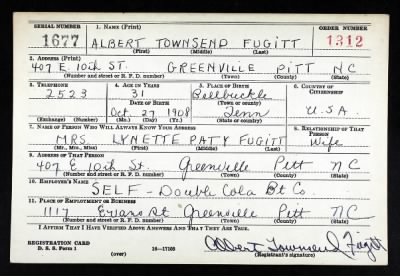 SERIAL NUMBER 1. NAME (Print) ORDER NUMBER
1677 ALBERT TOWNSEND FUGITT 1312
(First) (Middle) (Last)
2. ADDRESS (Print)
407 E. 10th ST. GREENVILLE PITT NC
(Number and street or R. F. D. number) (Town) (County) (State)
3. TELEPHONE 4. AGE IN YEARS 5. PLACE OF BIRTH 6. COUNTRY OF CITIZENSHIP
2523 31 Bellbuckle
DATE OF BIRTH (Town or county)
Oct 27 1908 Tenn U.S.A
(Exchange) (Number) (Mo.) (Day) (Yr.) (State or country)
7. NAME OF PERSON WHO WILL ALWAYS KNOW YOUR ADDRESS 8. RELATIONSHIP OF THAT PERSON
MRS LYNETTE PATY FUGITT Wife
(Mr., Mrs., Miss) (First) (Middle) (Last)
9. ADDRESS OF THAT PERSON
407 E 10th St. Greenville Pitt NC
(Number and street or R. F. D. number) (Town) (County) (State)
10. EMPLOYER'S NAME
SELF - Double Cola Bt Co
11. PLACE OF EMPLOYMENT OR BUSINESS
1117 Evans St Greenville Pitt NC
(Number and street or R. F. D. number) (Town) (County) (State)
I AFFIRM THAT I HAVE VERIFIED ABOVE ANSWERS AND THAT THEY ARE TRUE.
REGISTRATION CARD
D. S. S. Form 1 16-17105 Albert Townsend Fugitt
(over) (Registrant's signature)